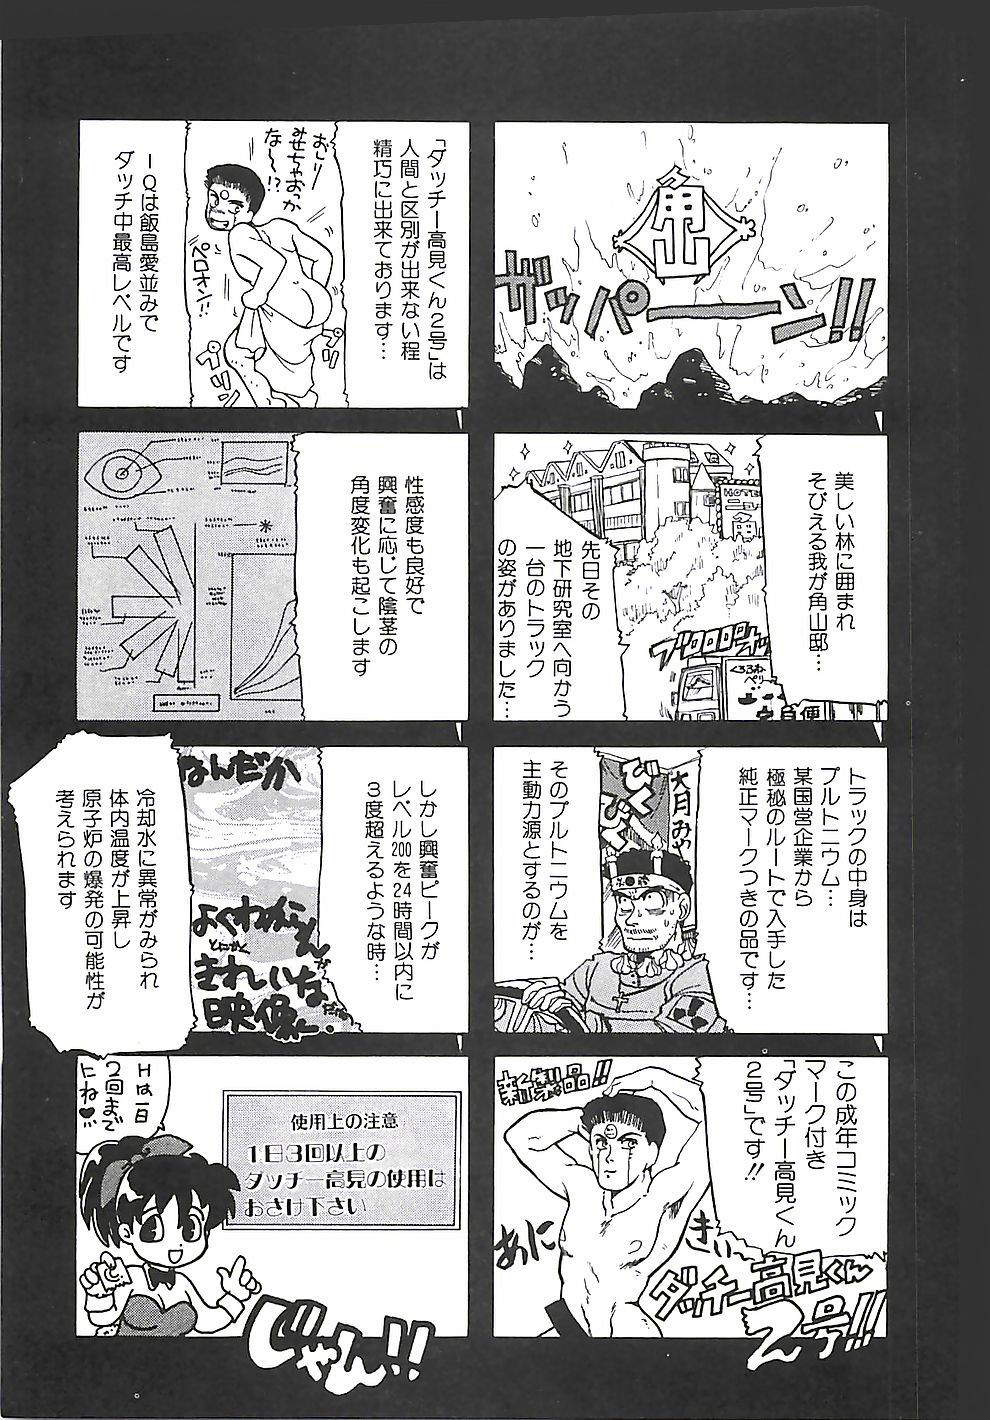 角山
ザッパーーン!!
美しい林に囲まれ
そびえる我が角山邸…
HOTEL
ニュー
角
先日その
地下研究室へ向かう
一台のトラック
の姿がありました…
ブロロロロォッ
くろねこ
ペリ
自便
トラックの中身は
プルトニウム…
某国営企業から
極秘のルートで入手した
純正マークつきの品です…
大月み
びくびく
そのプルトニウムを
主動力源とするのが…
この成年コミック
マーク付き
「ダッチー高見くん
2号」です!!
新製品!!
あにきぃ
ダッチー高見くん
2号!!!
「ダッチー高見くん2号」は
人間と区別が出来ない程
精巧に出来ております…
おごり
みせちゃおっか
な〜!?
ペロオン!!
プリ
プリン
IQは飯島愛並みで
ダッチ中最高レベルです
性感度も良好で
興奮に応じて陰茎の
角度変化も起こします
しかし興奮ピークが
レベル200を24時間以内に
3度超えるような時…
なんだか
よくわからんが
とにかく
きれいな
映像
冷却水に異常がみられ
体内温度が上昇し
原子炉の爆発の可能性が
考えられます
使用上の注意
1日3回以上の
ダッチー高見の使用は
おさけ下さい
Hは一日
2回まで
にね♥…
じゃん!!